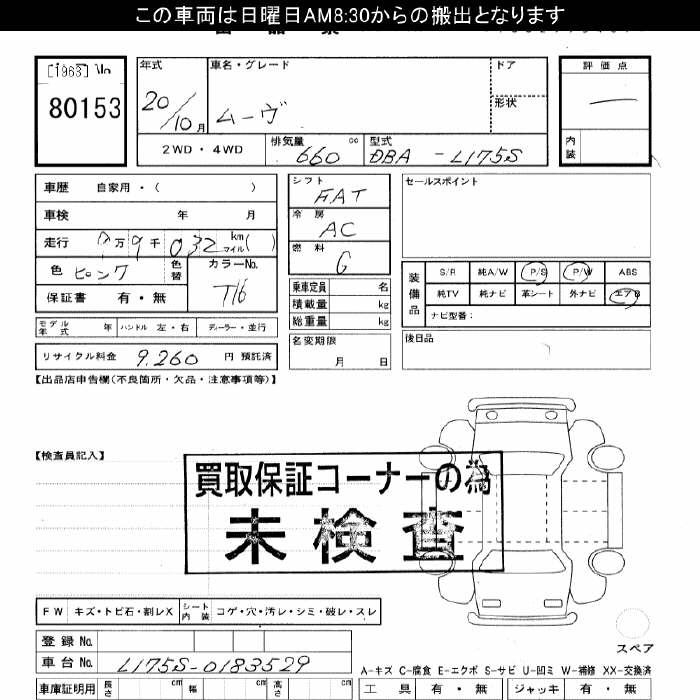 この車両は日曜日AM8:30からの搬出となります
[1963] No
80153
年式
20/10月
車名・グレード
ムーヴ
ドア
形状
評価点
内装
2WD・4WD
排気量 660 cc
型式 DBA - L175S
車歴 自家用・( )
車検 年 月
走行 万 9千 032 km マイル ( )
色 ピンク 色替
カラーNo. T16
保証書 有・無
シフト FAT
冷房 AC
燃料 G
乗車定員 名
積載量 kg
総重量 kg
名変期限 月 日
セールスポイント
装備品
S/R 純A/W P/S P/W ABS
純TV 純ナビ 革シート 外ナビ エアB
ナビ型番:
後日品
モデル年式 年 ハンドル 左・右 ディーラー・並行
リサイクル料金 9,260 円 預託済
【出品店申告欄(不良箇所・欠品・注意事項等)】
【検査員記入】
買取保証コーナーの為
未検査
FW キズ・トビ石・割レX シート内装 コゲ・穴・汚レ・シミ・破レ・スレ
スペア
登録No.
車台No. L175S-0183529
A-キズ C-腐食 E-エクボ S-サビ U-凹ミ W-補修 XX-交換済
車庫証明用 長さ cm 幅 cm 高さ cm
工具 有・無 ジャッキ 有・無